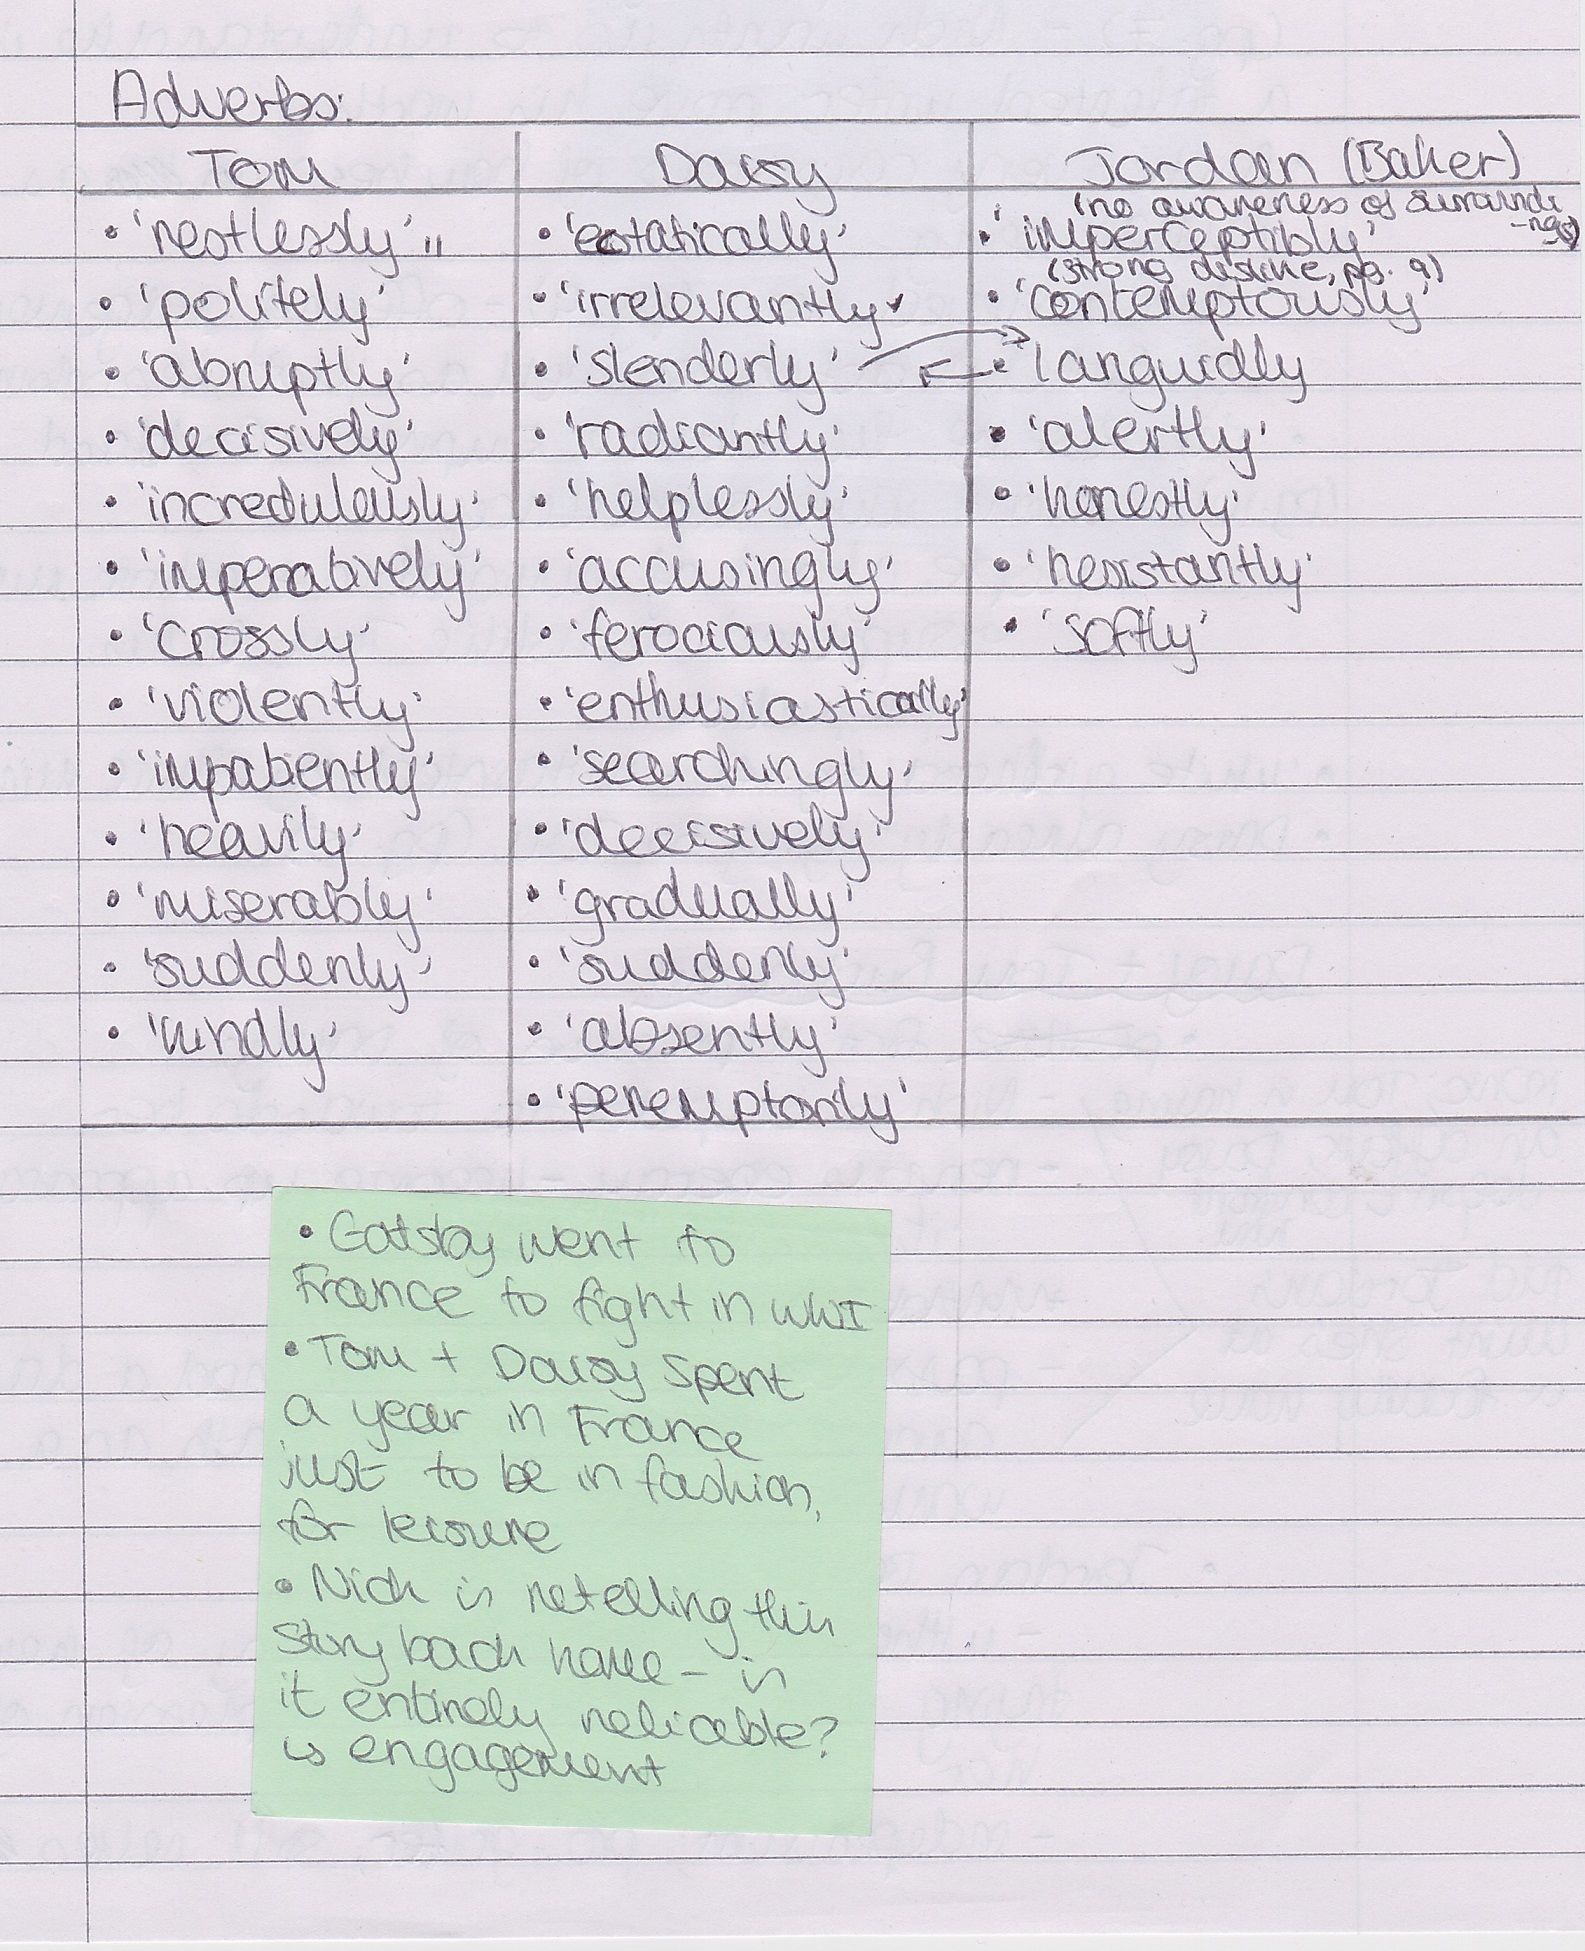 Adverbs:
Tom Daisy Jordan (Baker)
(no awareness of surroundi
-ngs)
• 'restlessly' 11 • 'ecstatically' • 'imperceptibly'
(strong dislike, pg. 9)
• 'politely' • 'irrelevantly' • 'contemptously'
• 'abruptly' • 'slenderly' • 'languidly
• 'decisively' • 'radiantly' • 'alertly'
• 'incredulously' • 'helplessly' • 'honestly'
• 'imperatively' • 'accusingly' • 'hesistantly'
• 'crossly' • 'ferociously' • 'softly'
• 'violently' • 'enthusiastically'
• 'impatiently' • 'searchingly'
• 'heavily' • 'decisively'
• 'miserably' • 'gradually'
• 'suddenly' • 'suddenly'
• 'kindly' • 'absently'
• 'peremptorily'
• Gatsby went to
France to fight in WWI
• Tom + Daisy spent
a year in France
just to be in fashion,
for leisure
• Nick is retelling this
story back home - is
it entirely reliable?
is engagement